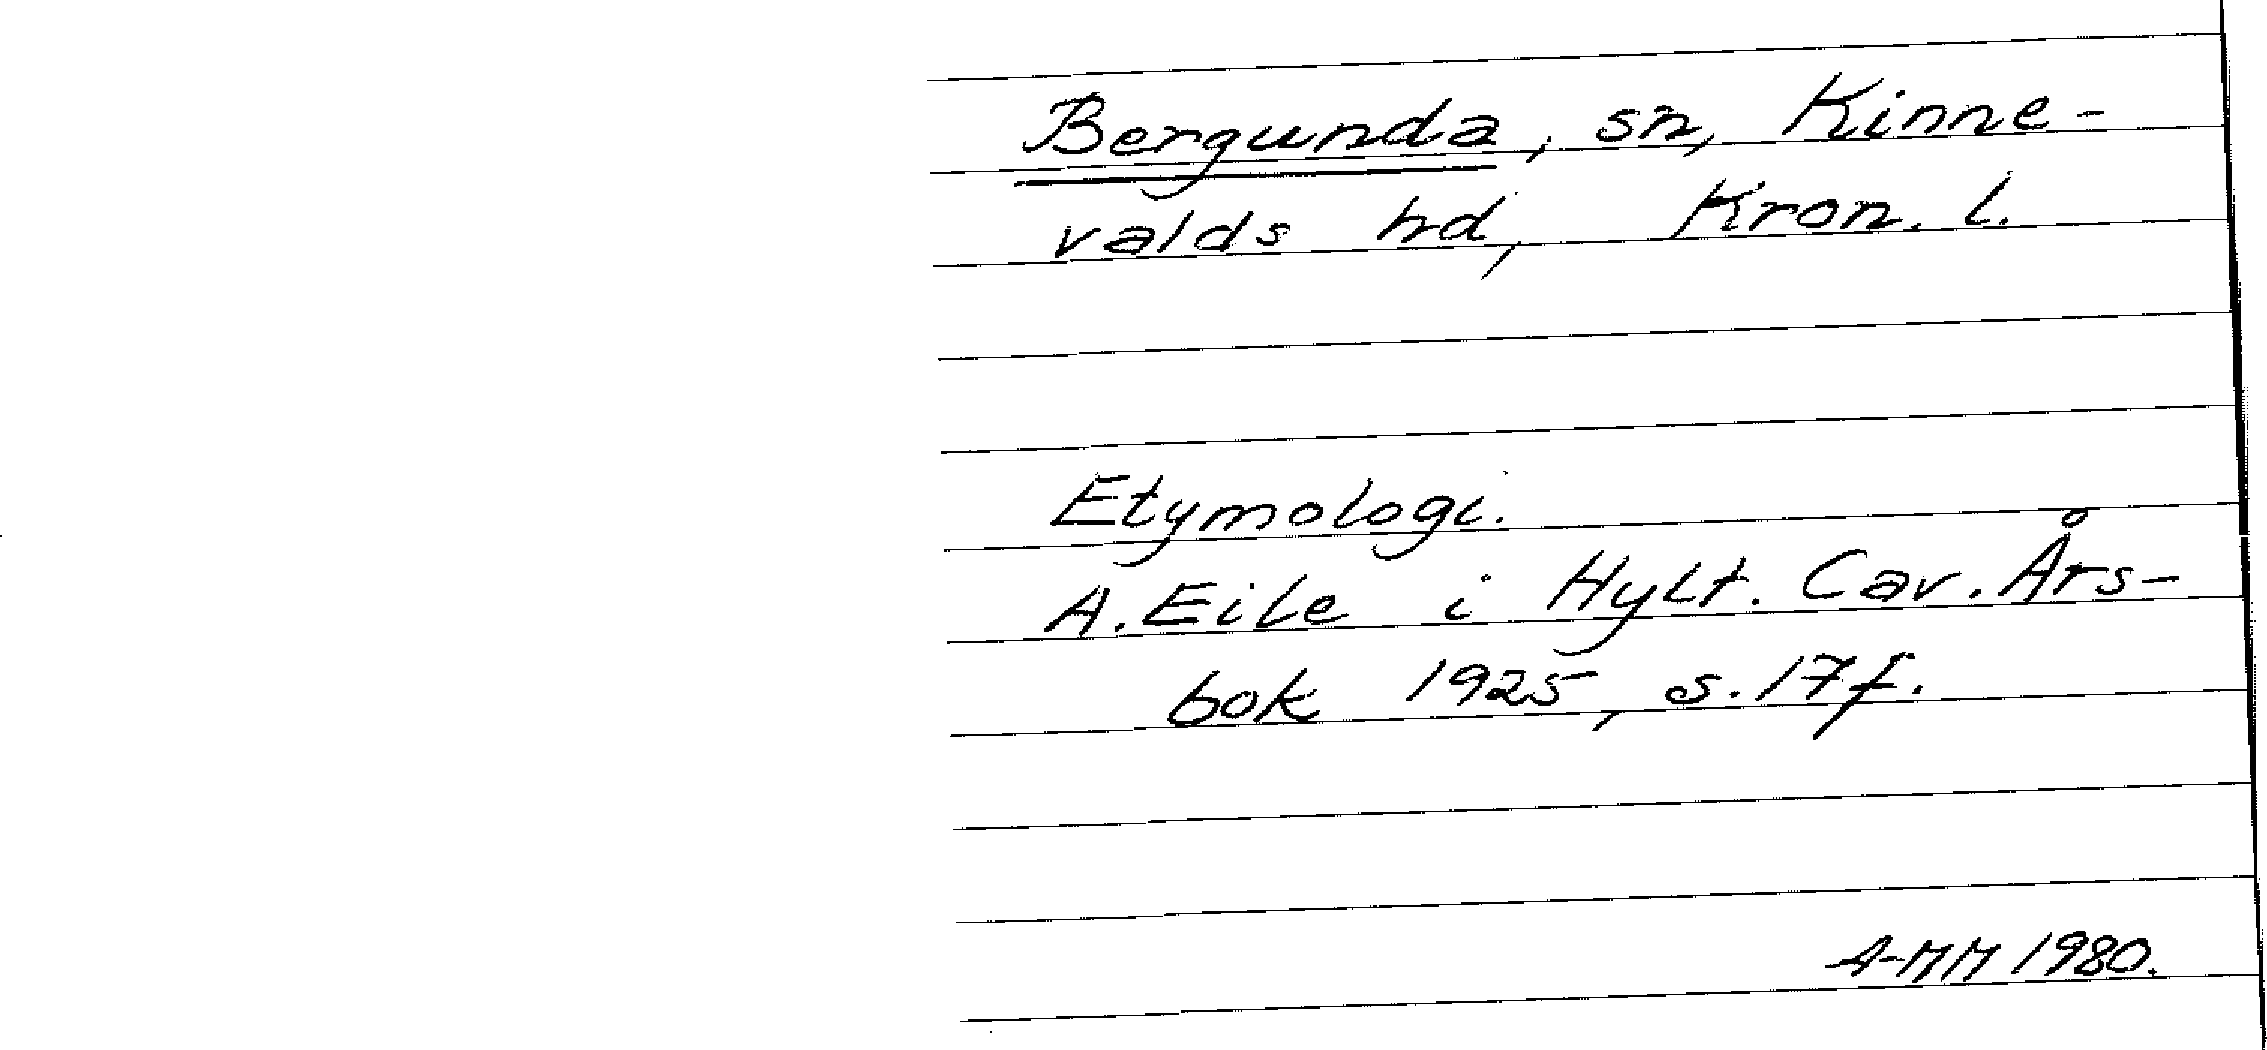 Bergunda, sn, Kinne-
valds hd, Kron. l.
Etymologi.
A. Eile i Hylt. Cav. Års-
bok 1925, s. 17 f.
A-MM 1980.